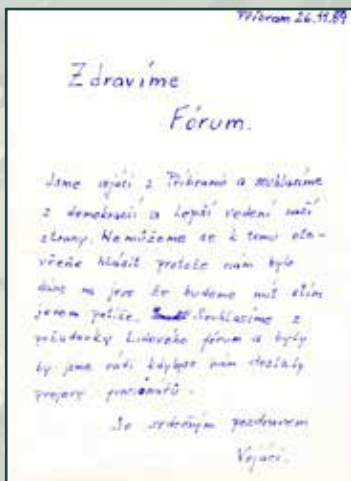 Příbram 26.11.89
Zdravíme
Fórum.
Jsme vojáci z Příbrami a souhlasíme
z demokracií a lepší vedení naší
strany. Nemůžeme se k tomu ote-
vřeně hlásit protože nám bylo
dáno na jevo že budeme mít stím
jenom potíže. Souhlasíme z
požadavky Lidového fórum a byly
by jsme rádi kdybyse nám dostaly
projevy
Se srdečným pozdravem
Vojáci.